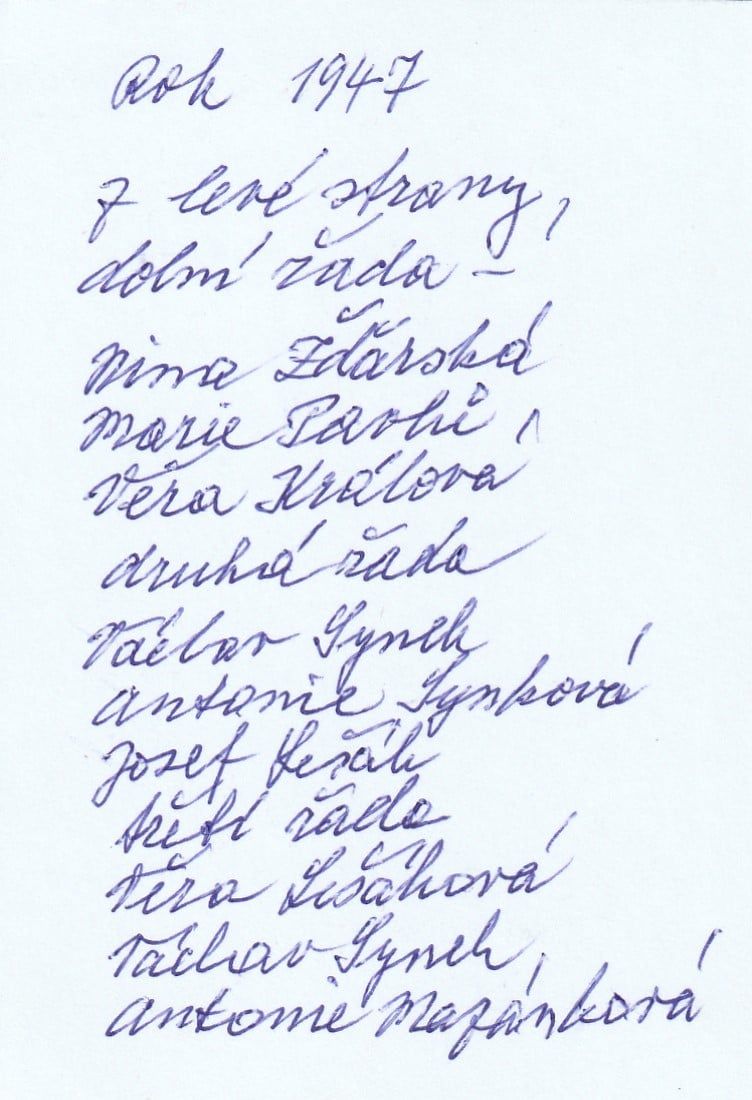 Rok 1947
z levé strany,
dolní řada –
Nina Žďárská
Marie Pavlů
Věra Králová
druhá řada
Václav Synek
Antonie Synková
Josef Lešák
třetí řada
Věra Lešáková
Václav Synek
Antonie Mazánková